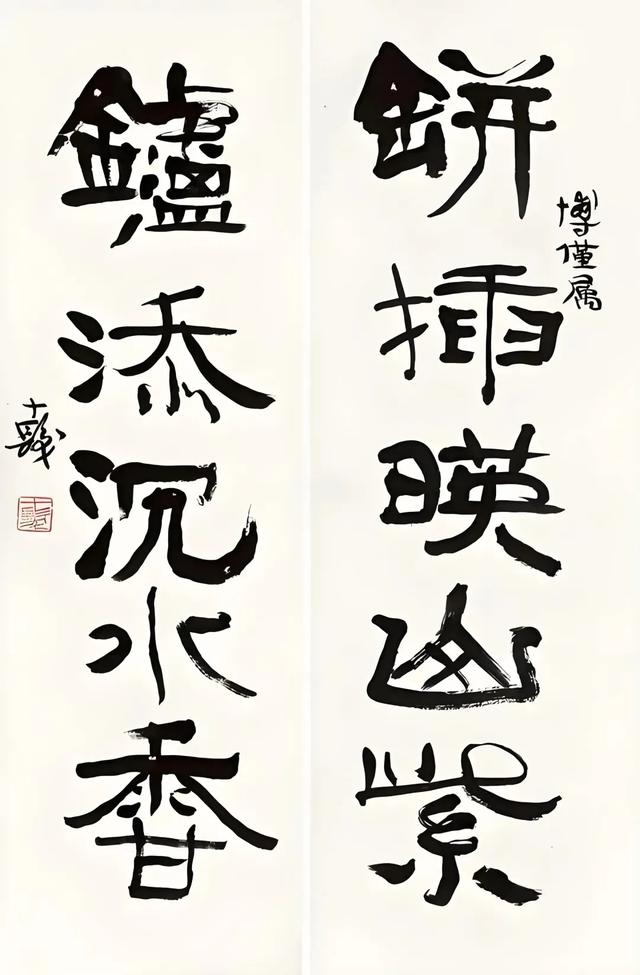 博僅属
鉼插暎山紫
鑪添沉水香
十髮